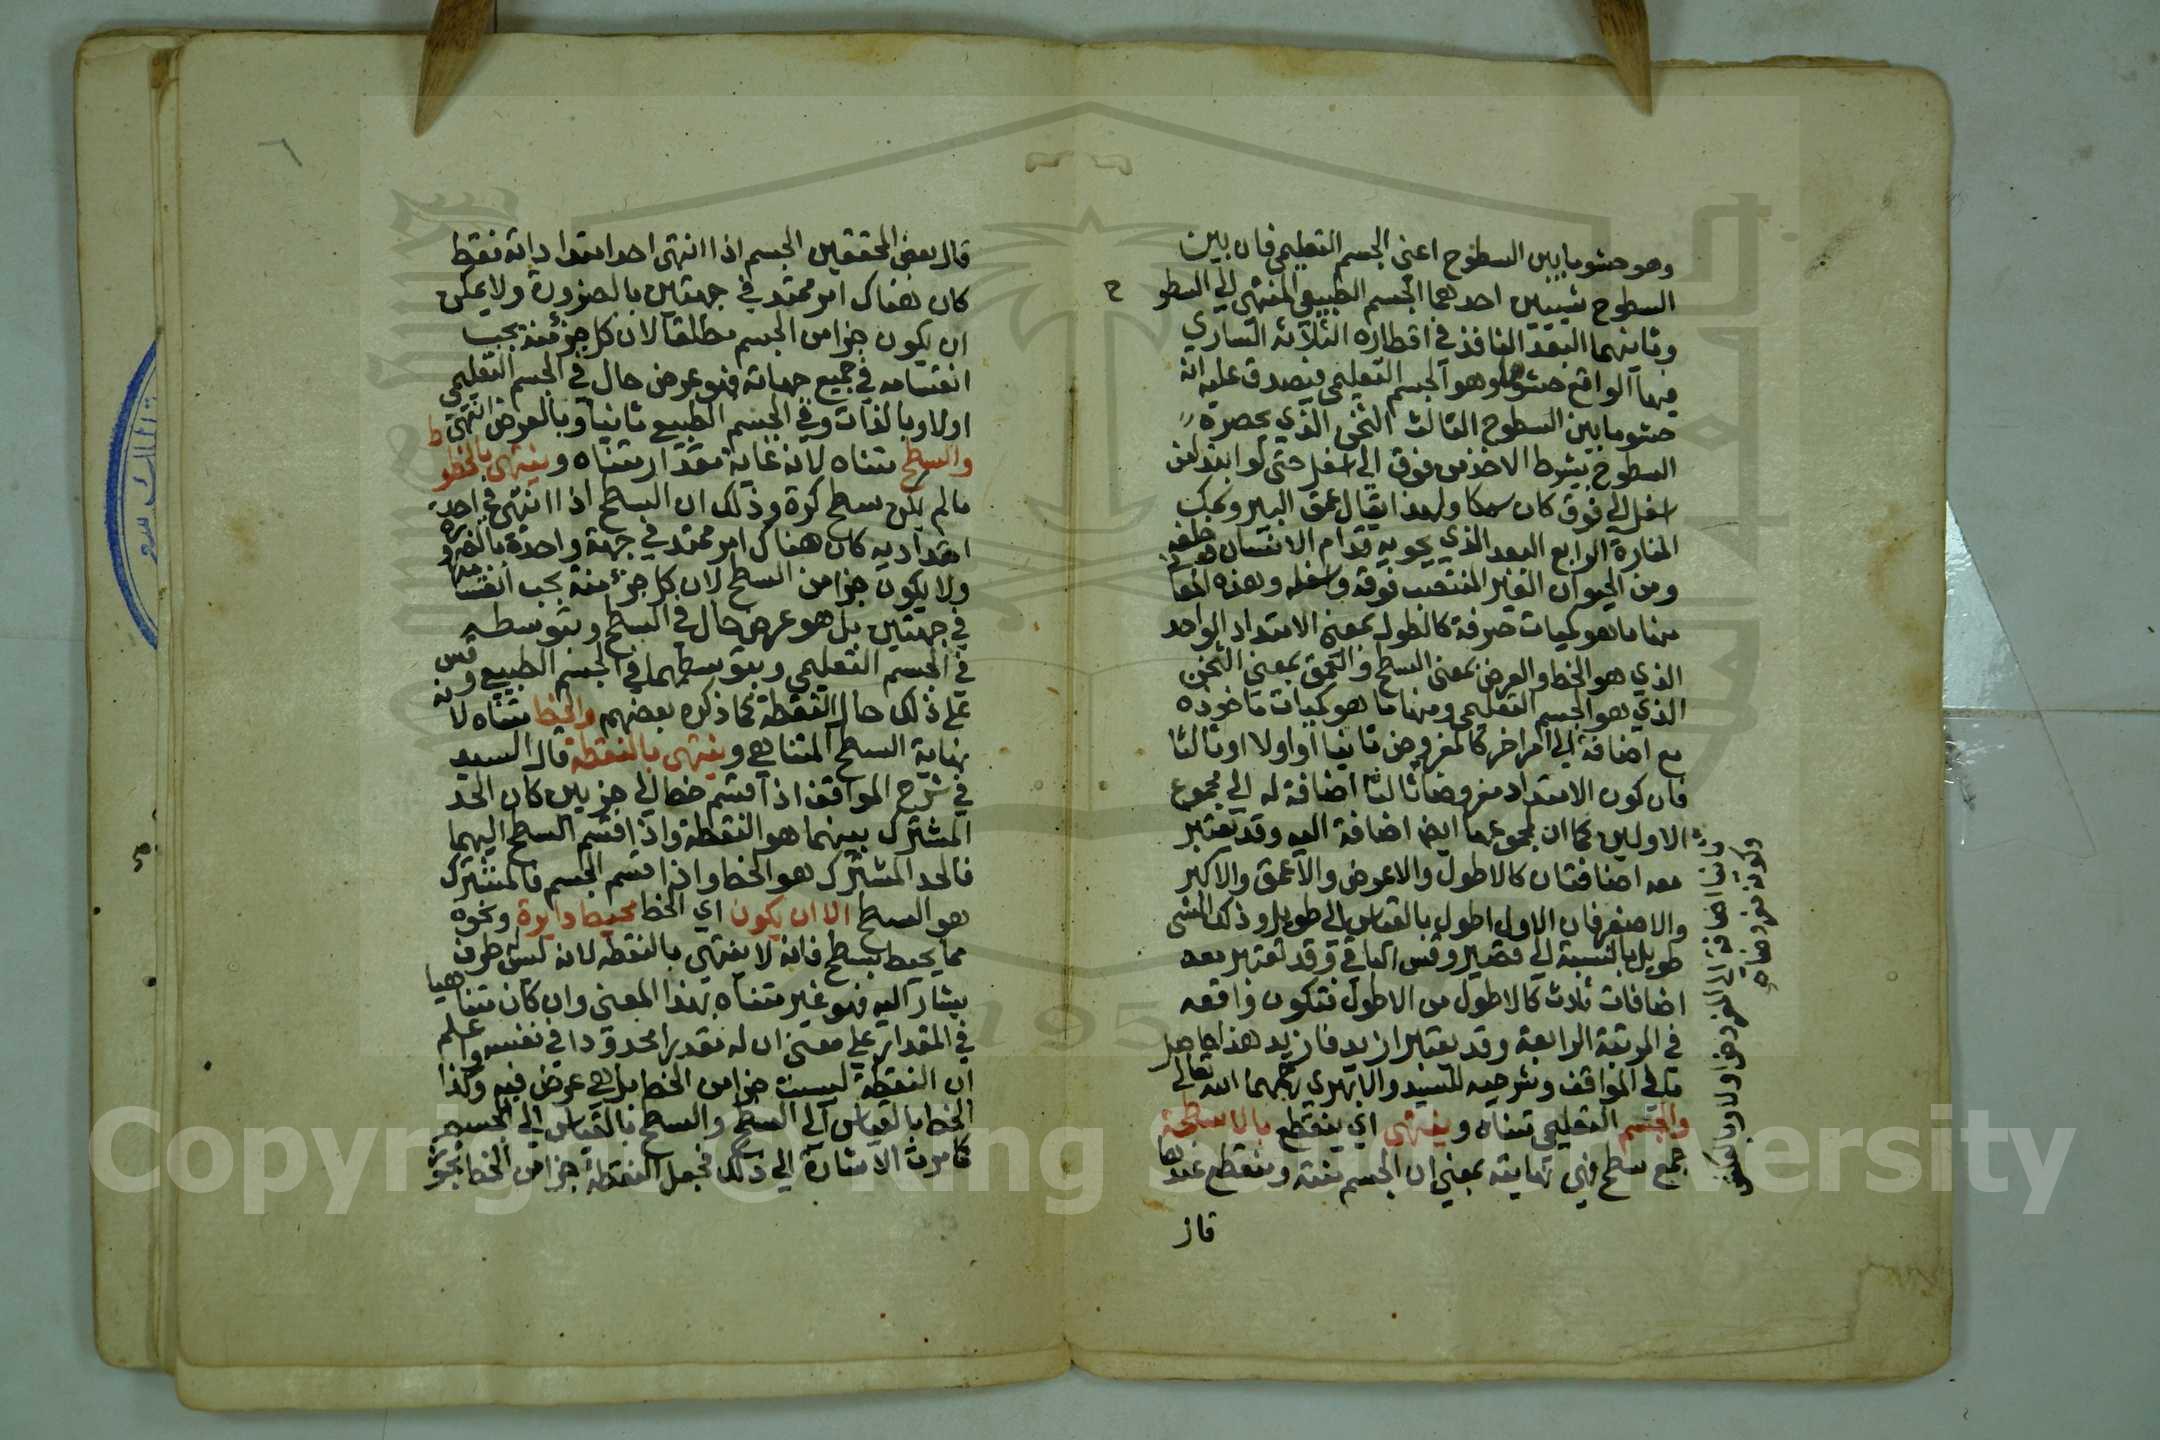 وهو حشو ما بين السطوح اعني الجسم التعليمي فان بين
السطوح شيئين احدهما الجسم الطبيعي المنتهي الي السطو
ح
وثانيهما البعد النافذ في اقطاره الثلاثة الساري
فيها الواقع حشوها وهو الجسم التعليمي فيصدق عليه انه
حشو ما بين السطوح الثالث الثخن الذي يحصره
السطوح بشرط الاخذ من فوق الي اسفل حتى لو ابتدئ من
اسفل الي فوق كان سمكا ولهذا يقال عمق البير وسمك
المنارة الرابع البعد الذي يحويه قدام الانسان وخلفه
ومن الحيوان الغير المنتصب فوقه واسفله وهذه المعا
منها ما هو كميات صرفة كالطول بمعنى الامتداد الواحد
الذي هو الخط والعرض بمعنى السطح والعمق بمعنى الثخن
الذي هو الجسم التعليمي ومنها ما هو كميات ماخوذه
مع اضافة الي امر اخر كالمفروض ثانيا او اولا او ثالثا
فان كون الامتداد مفروضا ثالثا اضافة له الي مجموع
الاولين كما ان لمجموعهما ايضا اضافة اليه وقد يعتبر
معه اضافتان كالاطول والاعرض والاعمق والاكبر
والاصغر فان الاول اطول بالقياس الي طويل وذلك الشي
طويل بالنسبة الي قصير وقس الباقي وقد تعتبر معه
اضافات ثلاث كالاطول من الاطول فتكون واقعه
في المرتبة الرابعة وقد يعتبر ازيد فازيد هذا حاصل
ما في المواقف وشرحيه للسيد والابهري رحمهما الله تعالى
والجسم التعليمي متناه وينتهي اي ينقطع بالاسطحة
جمع سطح فهي نهايته بمعنى ان الجسم ينته وينقطع عندها
قال
قال بعض المحققين الجسم اذا انتهى احد امتداداته فقط
كان هناك امر ممتد في جهتين بالضرورة ولا يمكن
ان يكون جزا من الجسم مطلقا لان كل جزء منه يجب
انقسامه في جميع جهاته فهو عرض حال في الجسم التعليمي
اولا وبالذات وفي الجسم الطبيعي ثانيا وبالعرض انتهى
والسطح متناه لانه غاية مقدار متناه وينتهي بالخطوط
ما لم يكن سطح كرة وذلك ان السطح اذا انتهى في احد
امتداديه كان هناك امر ممتد في جهة واحدة بالضرورة
ولا يكون جزا من السطح لان كل جزء منه يجب انقسامه
في جهتين بل هو عرض حال في السطح وبتوسطه
في الجسم التعليمي وبتوسطهما في الجسم الطبيعي وقس
على ذلك حال النقطة كما ذكره بعضهم والخط متناه لانه
نهاية السطح المتناهي وينتهي بالنقطة قال السيد
في شرح المواقف اذا قسم خط الي جزيين كان الحد
المشترك بينهما هو النقطة واذا قسم السطح اليهما
فالحد المشترك هو الخط واذا قسم الجسم فالمشترك
هو السطح الا ان يكون اي الخط محيط دايرة ونحوه
مما يحيط بسطح فانه لا ينتهي بالنقطه لانه ليس طرف
يشار اليه فهو غير متناه بهذا المعنى وان كان متناهيا
في المقدار على معنى ان له مقدرا محدودا في نفسه واعلم
ان النقطة ليست جزا من الخط بل هي عرض فيه وكذا
الخط بالقياس الي السطح والسطح بالقياس الي الجسم
كما مرت الاشارة الي ذلك فجعل النقطة جزا من الخط تجوز